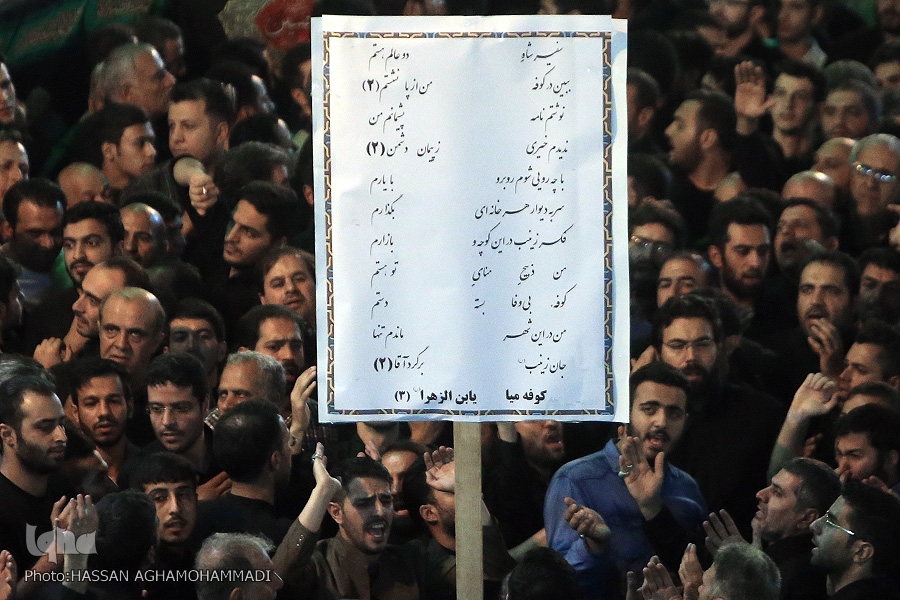 سفیر شاهِ دو عالم هستم
ببین در کوفه من از پا نشستم (۲)
نوشتم نامه پشیمانم من
ندیدم خیری ز پیمان دشمن (۲)
با چه رویی شوم روبرو با یارم
سر به دیوار هر خانه ای بگذارم
فکر زینب در این کوچه و بازارم
من ذبیحِ منایِ تو هستم
کوفه، بی وفا بسته دستم
من در این شهر ماندم تنها
جان زینب برگرد آقا (۲)
کوفه میا یابن الزهرا (۳)
iqna
Photo:HASSAN AGHAMOHAMMADI